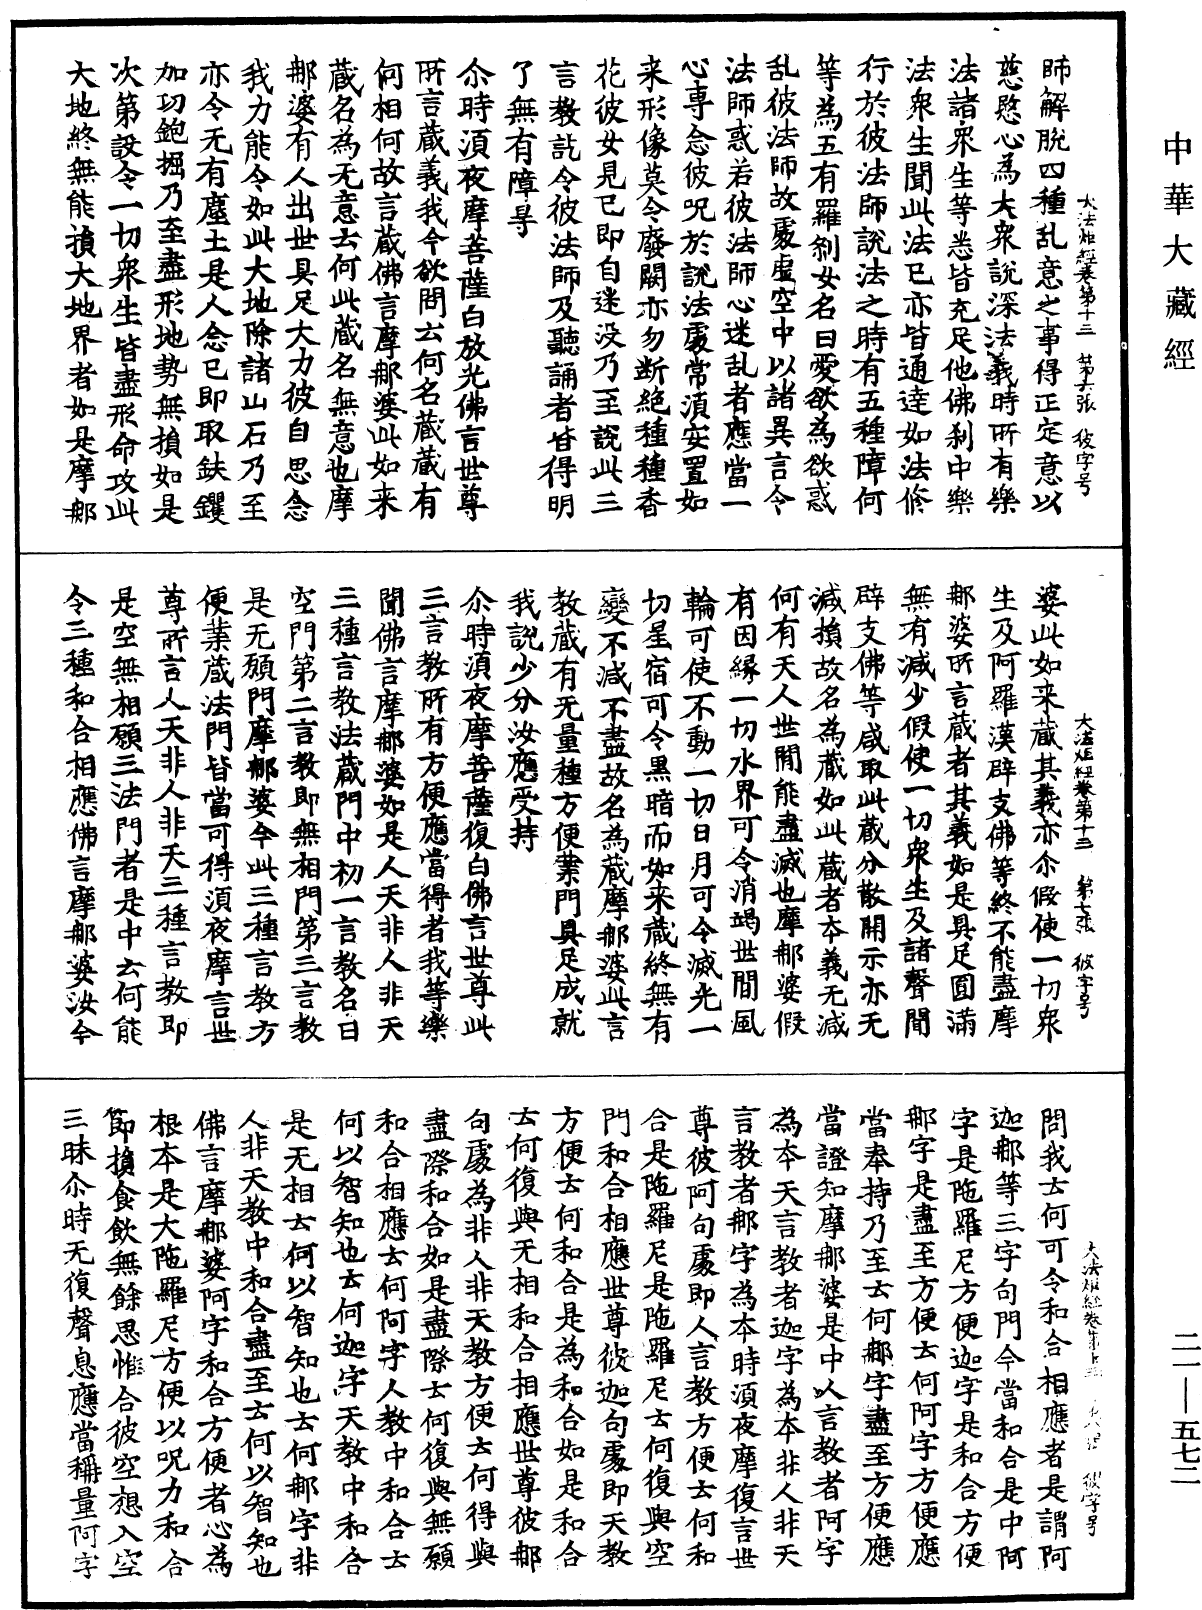 中華大藏經
大法炬經卷第十三　第六張　彼字号
師解脫四種乱意之事得正定意以
慈愍心為大衆說深法義時所有樂
法諸衆生等悉皆充足他佛刹中樂
法衆生聞此法已亦皆通達如法脩
行於彼法師說法之時有五種障何
等為五有羅剎女名曰愛欲為欲惑
乱彼法師故處虛空中以諸異言令
法師惑若彼法師心迷乱者應當一
心專念彼呪於說法處常湏安置如
来形像莫令廢闕亦勿断絕種種香
花彼女見已即自迷没乃至說此三
言教訖令彼法師及聽誦者皆得明
了無有障㝵
尒時湏夜摩菩薩白放光佛言世尊
所言蔵義我今欲問云何名蔵蔵有
何相何故言蔵佛言摩那婆此如来
蔵名為无意云何此蔵名無意也摩
那婆有人出世具足大力彼自思念
我力能令如此大地除諸山石乃至
亦令无有塵土是人念已即取鈇钁
加功鉋掘乃至盡形地勢無損如是
次第設令一切衆生皆盡形命攻此
大地終無能損大地界者如是摩那
大法炬經卷第十三　第七張　彼字号
婆此如来蔵其義亦尒假使一切衆
生及阿羅漢辟支佛等終不能盡摩
那婆所言蔵者其義如是具足圓滿
無有減少假使一切衆生及諸聲聞
辟支佛等咸取此蔵分散開示亦无
減損故名為蔵如此蔵者本義无減
何有天人世間能盡滅也摩那婆假
有因緣一切水界可令消竭世間風
輪可使不動一切日月可令滅光一
切星宿可令黑暗而如来蔵終無有
變不減不盡故名為蔵摩那婆此言
教蔵有无量種方便業門具足成就
我說少分汝應受持
尒時湏夜摩菩薩復白佛言世尊此
三言教所有方便應當得者我等樂
聞佛言摩那婆如是人天非人非天
三種言教法蔵門中初一言教名曰
空門第二言教即無相門第三言教
是无願門摩那婆今此三種言教方
便業蔵法門皆當可得湏夜摩言世
尊所言人天非人非天三種言教即
是空無相願三法門者是中云何能
令三種和合相應佛言摩那婆汝今
大法炬經卷第十三　第八張　彼字号
問我云何可令和合相應者是謂阿
迦那等三字句門今當和合是中阿
字是陁羅尼方便迦字是和合方便
那字是盡至方便云何阿字方便應
當奉持乃至云何那字盡至方便應
當證知摩那婆是中人言教者阿字
為本天言教者迦字為本非人非天
言教者那字為本時湏夜摩復言世
尊彼阿句處即人言教方便云何和
合是陁羅尼是陁羅尼云何復與空
門和合相應世尊彼迦句處即天教
方便云何和合是為和合如是和合
云何復與无相和合相應世尊彼那
句處為非人非天教方便云何得與
盡際和合如是盡際云何復與無願
和合相應云何阿字人教中和合云
何以智知也云何迦字天教中和合
是无相云何以智知也云何那字非
人非天教中和合盡至云何以智知也
佛言摩那婆阿字和合方便者心為
根本是大陁羅尼方便以呪力和合
節損食飲無餘思惟合彼空想入空
三昧尒時无復聲息應當稱量阿字
二一—五七二